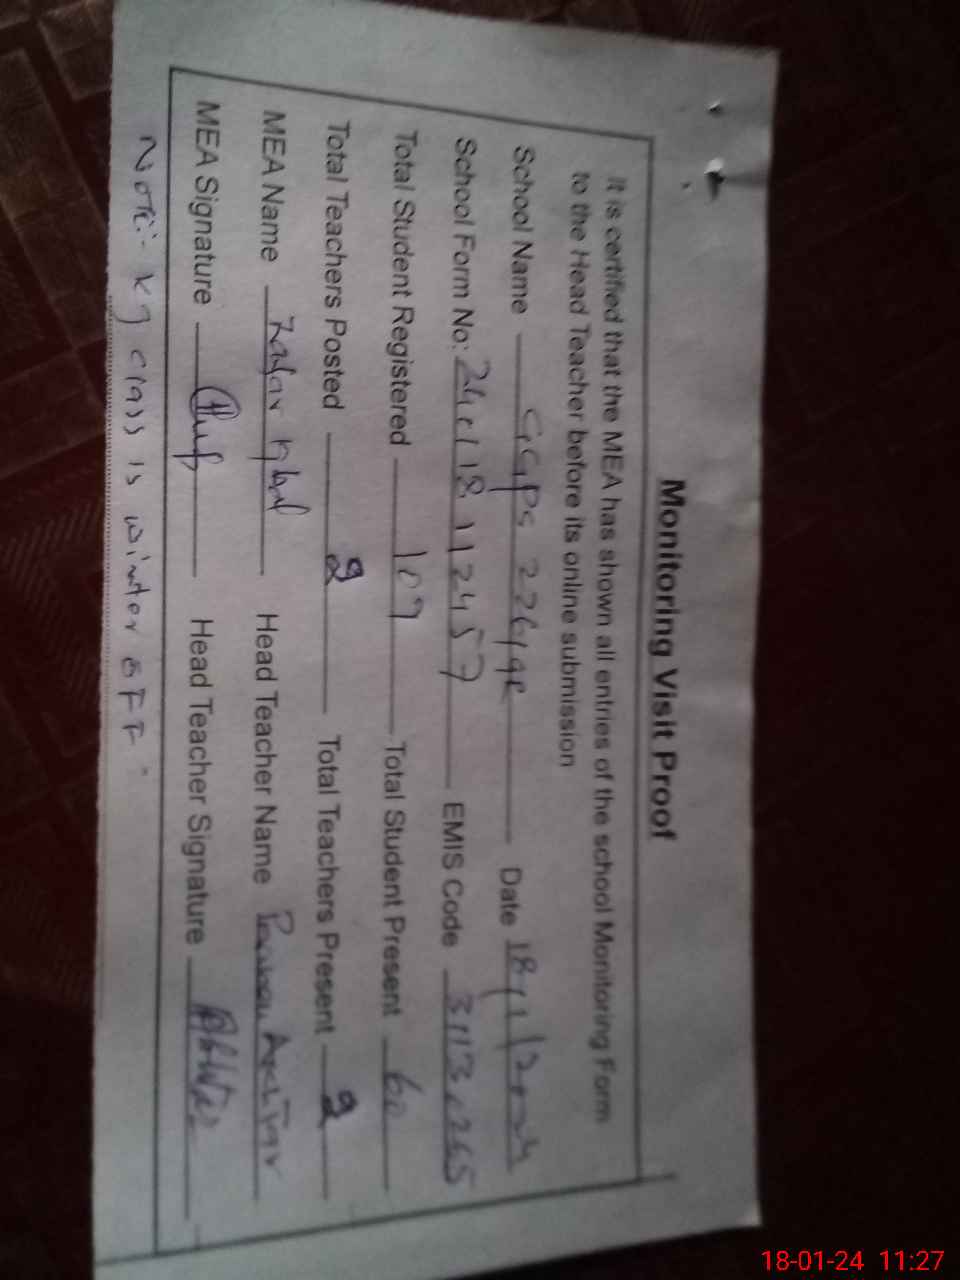 Monitoring Visit Proof
It is certified that the MEA has shown all entries of the school Monitoring Form
to the Head Teacher before its online submission
School Name GGPS 226/9R Date 18/1/2024
School Form No: 240118112457 EMIS Code 31130265
Total Student Registered 109 Total Student Present 60
Total Teachers Posted 2 Total Teachers Present 2
MEA Name Zafar Iqbal Head Teacher Name
MEA Signature Head Teacher Signature
NOTE:- Kg class is winter OFF.
18-01-24 11:27